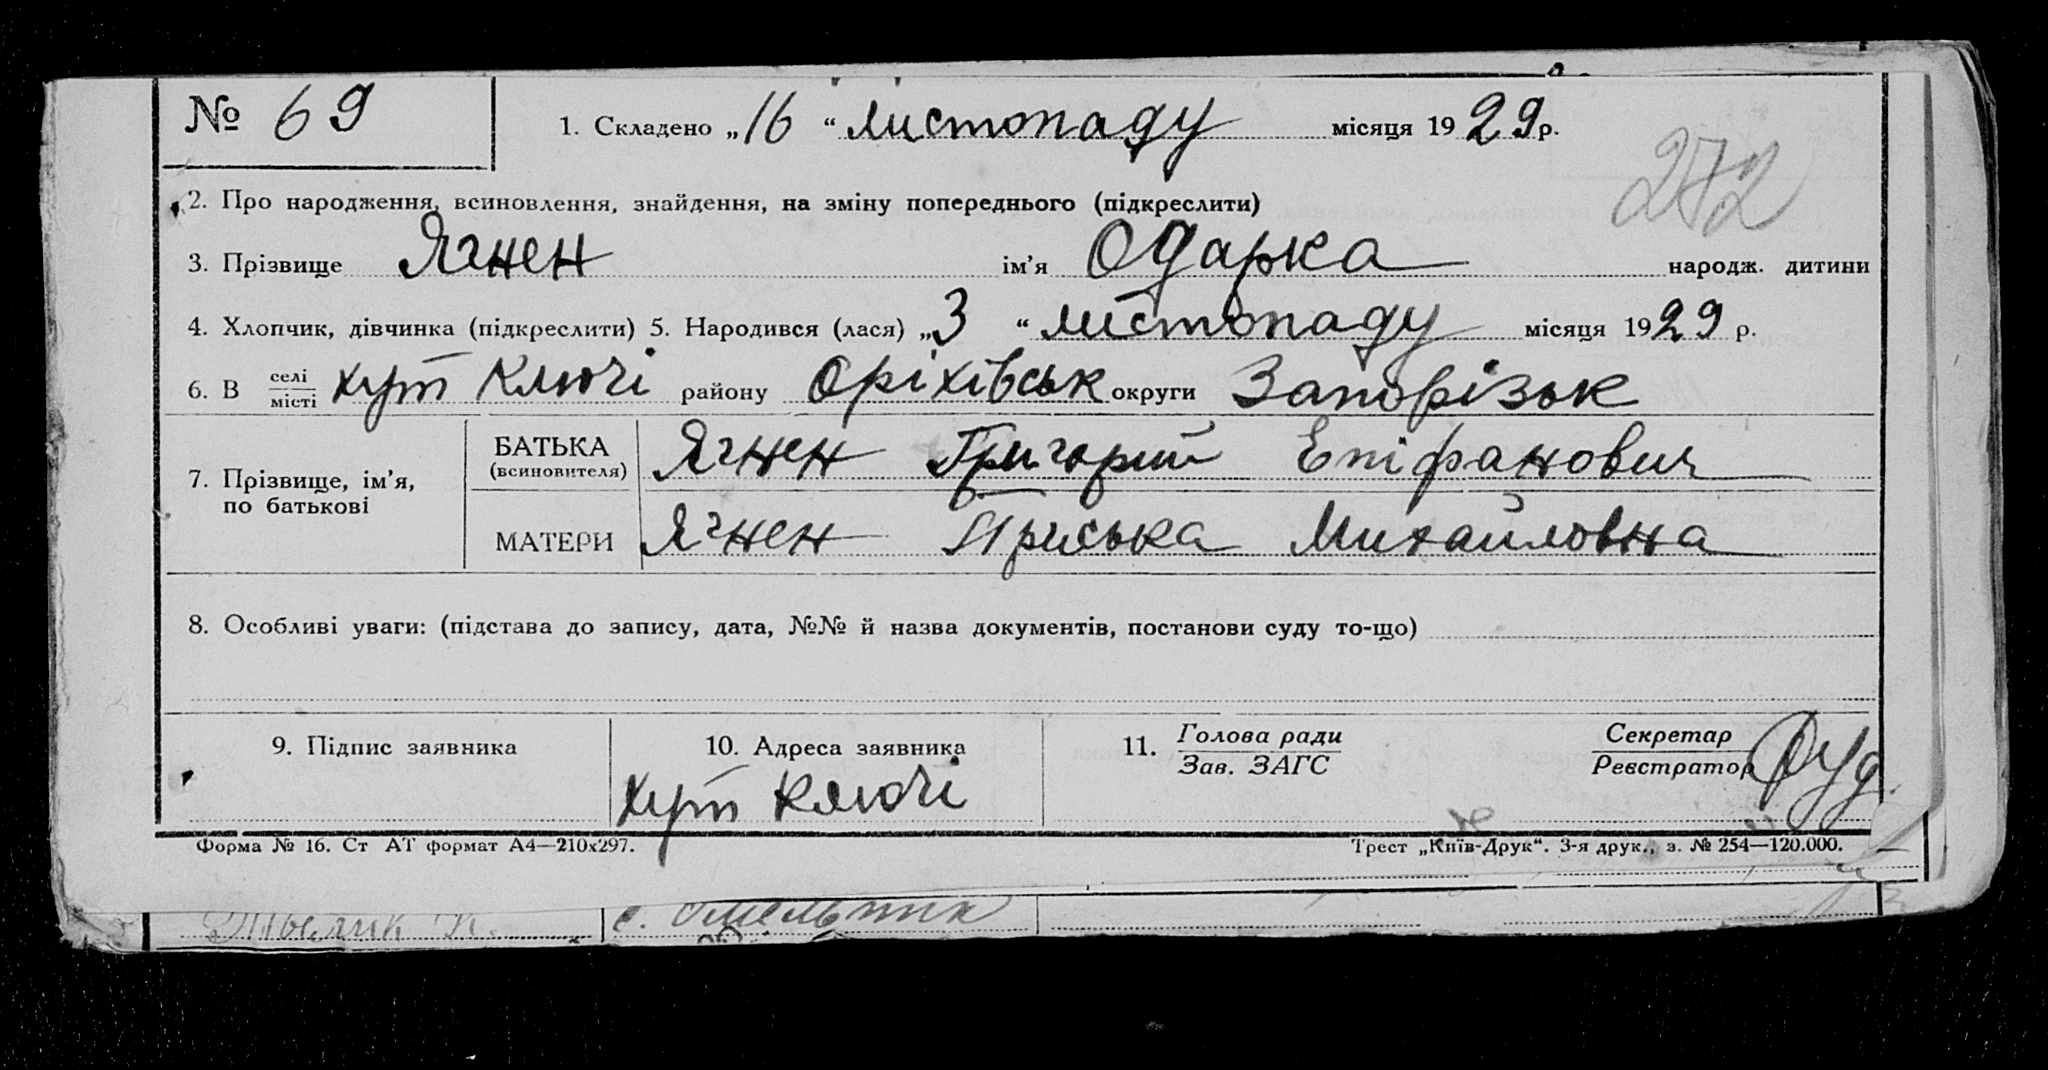 № 69
1. Складено „16“ листопаду місяця 1929 р.
272
2. Про народження, всиновлення, знайдення, на зміну попереднього (підкреслити)
3. Прізвище Ягнен ім'я Одарка народж. дитини
4. Хлопчик, дівчинка (підкреслити) 5. Народився (лася) „3“ листопаду місяця 1929 р.
6. В селі місті хут Ключі району Оріхівськ округи Запорізьк
7. Прізвище, ім'я, по батькові
БАТЬКА (всиновителя) Ягнен Григорий Епіфанович
МАТЕРИ Ягнен Приська Михайловна
8. Особливі уваги: (підстава до запису, дата, №№ й назва документів, постанови суду то-що)
9. Підпис заявника
10. Адреса заявника
хут Ключі
11. Голова ради Зав. ЗАГС
Секретар Реєстратор
Форма № 16. Ст АТ формат А4—210х297.
Трест „Київ-Друк“. 3-я друк., з. № 254—120.000.